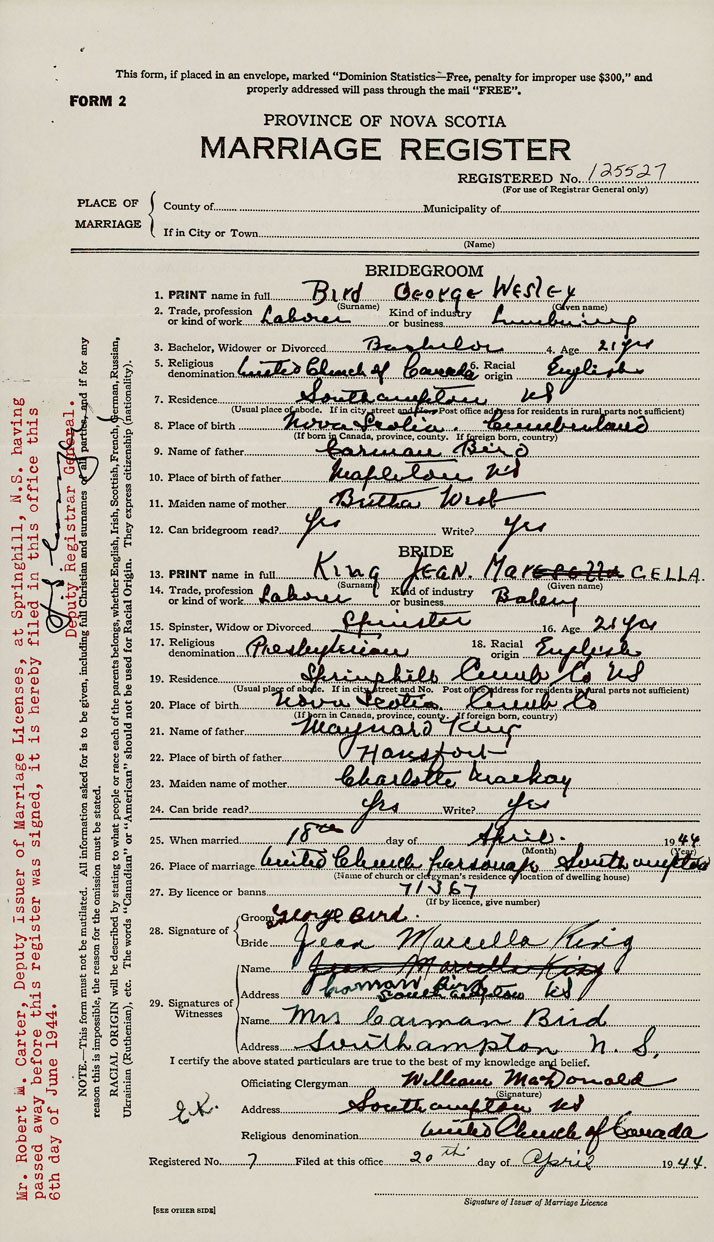 This form, if placed in an envelope, marked "Dominion Statistics—Free, penalty for improper use $300," and
properly addressed will pass through the mail "FREE".
FORM 2
PROVINCE OF NOVA SCOTIA
MARRIAGE REGISTER
REGISTERED No. 125527
(For use of Registrar General only)
PLACE OF MARRIAGE
County of Municipality of
If in City or Town
(Name)
BRIDEGROOM
1. PRINT name in full Bird George Wesley
(Surname) (Given name)
2. Trade, profession or kind of work Laborer Kind of industry or business Lumbering
3. Bachelor, Widower or Divorced Bachelor 4. Age 21 yrs
5. Religious denomination United Church of Canada 6. Racial origin English
7. Residence Southampton NS
(Usual place of abode. If in city street and No. Post office address for residents in rural parts not sufficient)
8. Place of birth Nova Scotia Cumberland
(If born in Canada, province, county. If foreign born, country)
9. Name of father Carman Bird
10. Place of birth of father Mapleton NS
11. Maiden name of mother Burtta West
12. Can bridegroom read? Yes Write? Yes
BRIDE
13. PRINT name in full King JEAN. Mar CELLA.
(Surname) (Given name)
14. Trade, profession or kind of work Laborer Kind of industry or business Bakery
15. Spinster, Widow or Divorced Spinster 16. Age 21 yrs
17. Religious denomination Presbyterian 18. Racial origin English
19. Residence Springhill Cumb Co NS
(Usual place of abode. If in city street and No. Post office address for residents in rural parts not sufficient)
20. Place of birth Nova Scotia Cumb Co
(If born in Canada, province, county. If foreign born, country)
21. Name of father Maynard King
22. Place of birth of father Hansford
23. Maiden name of mother Charlotte Mackay
24. Can bride read? Yes Write? Yes
25. When married 18th day of April. 1944
(Month) (Year)
26. Place of marriage United Church parsonage Southampton
(Name of church or clergyman's residence or location of dwelling house)
27. By licence or banns 71367
(If by licence, give number)
28. Signature of
Groom George Bird.
Bride Jean Marcella King
29. Signatures of Witnesses
Name Jean Marcella King
Carman Bird
Address Southampton NS
Name Mrs Carman Bird
Address Southampton N.S,
I certify the above stated particulars are true to the best of my knowledge and belief.
Officiating Clergyman William MacDonald
(Signature)
Address Southampton NS
Religious denomination United Church of Canada
Registered No. 7 Filed at this office 20th day of April 1944.
Signature of Issuer of Marriage Licence
[SEE OTHER SIDE]
NOTE.—This form must not be mutilated. All information asked for is to be given, including full Christian and surnames of all parties, and if for any
reason this is impossible, the reason for the omission must be stated.
RACIAL ORIGIN will be described by stating to what people or race each of the parents belongs, whether English, Irish, Scottish, French, German, Russian,
Ukrainian (Ruthenian), etc. The words "Canadian" or "American" should not be used for Racial Origin. They express citizenship (nationality).
Mr. Robert M. Carter, Deputy Issuer of Marriage Licenses, at Springhill, N.S. having
passed away before this register was signed, it is hereby filed in this office this
6th day of June 1944.
Deputy Registrar General.